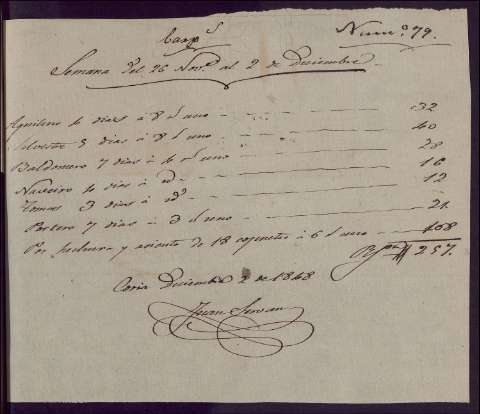 Carp.s
Num.o 79.
Semana del 26 Nov.e al 2 de Diciembre
Aquilino 4 dias á 8 r.s uno 32
Silvestre 5 dias á 8 r.s uno 40
Baldomero 7 dias á 4 r.s uno 28
4 dias á id. 16
Tomas 3 dias á id. 12
Portero 7 dias á 3 r.s uno 21
Por hechura y asiento de 18 á 6 r.s uno 108
257.
Coria Diciembre 2 de 1848
Juan Servan